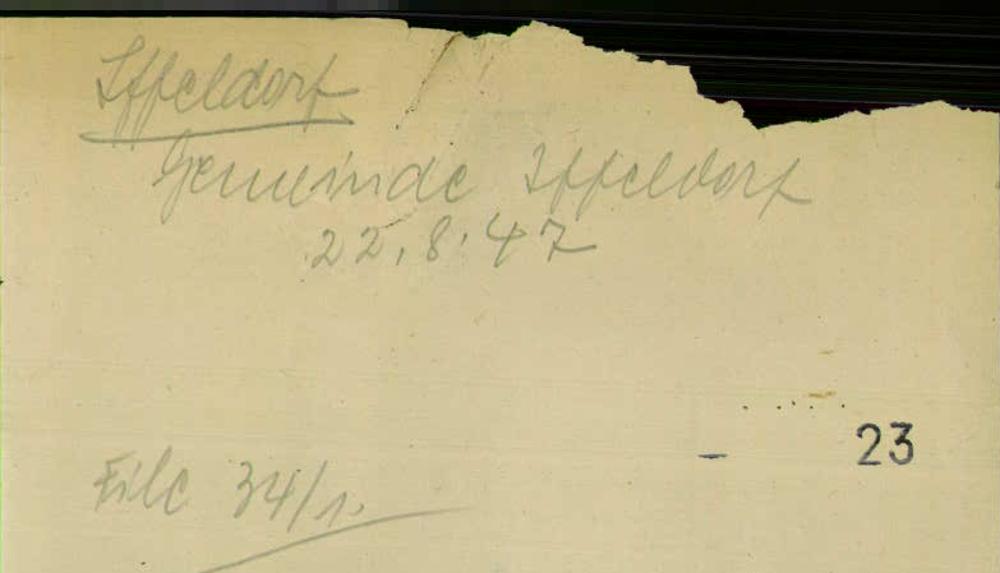 Iffeldorf
Gemeinde Iffeldorf
22.8.47
- 23
File 34/1.